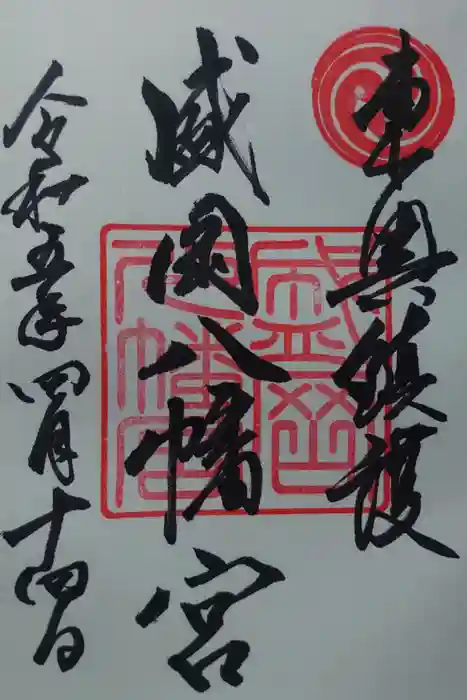 東奥鎮護
盛岡八幡宮
令和五年四月十四日
盛岡
八幡宮